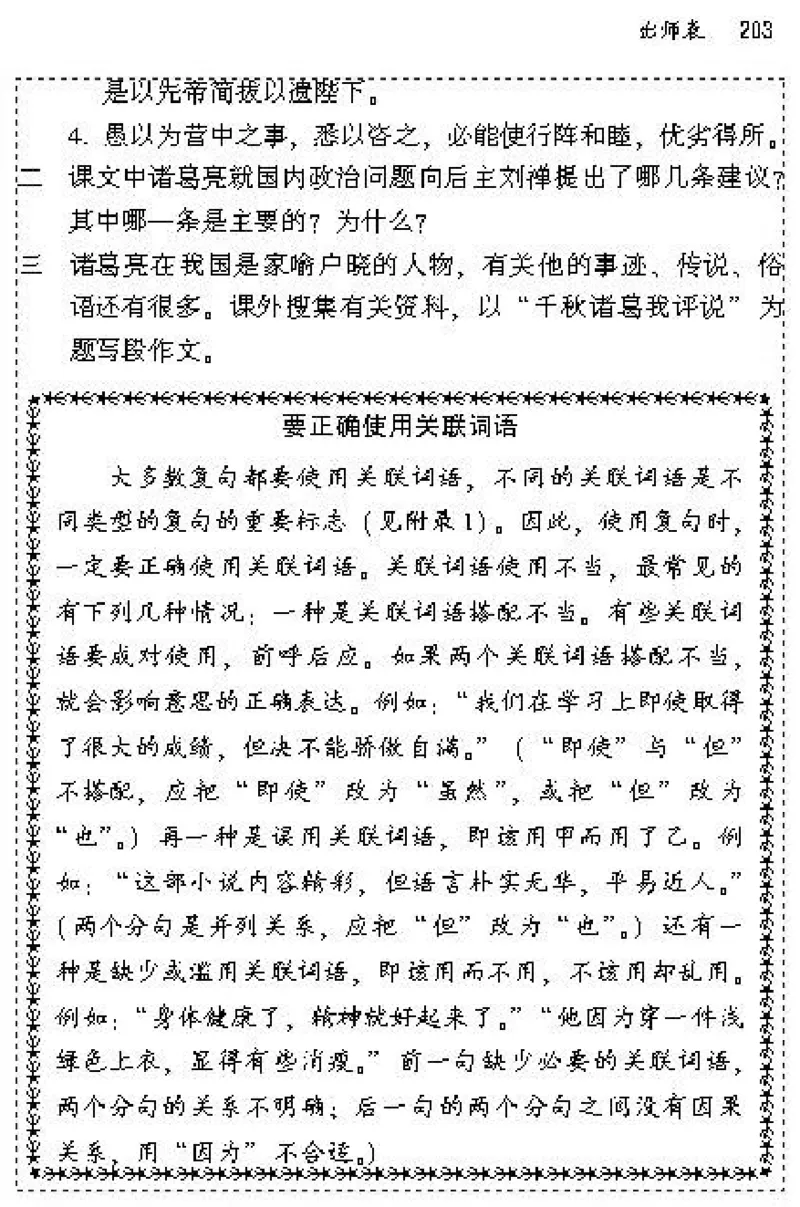 出师表 203
是以先帝简拔以遗陛下。
4. 愚以为营中之事，悉以咨之，必能使行阵和睦，优劣得所。
二 课文中诸葛亮就国内政治问题向后主刘禅提出了哪几条建议？
其中哪一条是主要的？为什么？
三 诸葛亮在我国是家喻户晓的人物，有关他的事迹、传说、俗
语还有很多。课外搜集有关资料，以“千秋诸葛我评说”为
题写段作文。
要正确使用关联词语
大多数复句都要使用关联词语，不同的关联词语是不
同类型的复句的重要标志（见附录1）。因此，使用复句时，
一定要正确使用关联词语。关联词语使用不当，最常见的
有下列几种情况：一种是关联词语搭配不当。有些关联词
语要成对使用，前呼后应。如果两个关联词语搭配不当，
就会影响意思的正确表达。例如：“我们在学习上即使取得
了很大的成绩，但决不能骄傲自满。”（“即使”与“但”
不搭配，应把“即使”改为“虽然”，或把“但”改为
“也”。）再一种是误用关联词语，即该用甲而用了乙。例
如：“这部小说内容精彩，但语言朴实无华，平易近人。”
（两个分句是并列关系，应把“但”改为“也”。）还有一
种是缺少或滥用关联词语，即该用而不用，不该用却乱用。
例如：“身体健康了，精神就好起来了。”“他因为穿一件浅
绿色上衣，显得有些消瘦。”前一句缺少必要的关联词语，
两个分句的关系不明确；后一句的两个分句之间没有因果
关系，用“因为”不合适。）